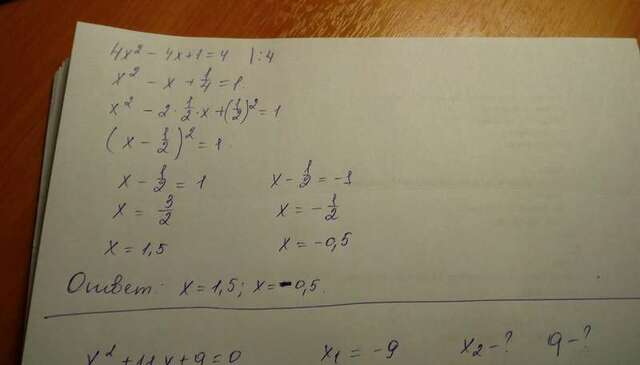 4x² - 4x+1 = 4 |:4
x² - x + 1/4 = 1.
x² - 2·1/2·x + (1/2)² = 1
(x - 1/2)² = 1.
x - 1/2 = 1 x - 1/2 = -1
x = 3/2 x = -1/2
x = 1,5 x = -0,5
Ответ: x = 1,5; x = -0,5.
x² + 11x + q = 0 x₁ = -9 x₂ - ? q - ?